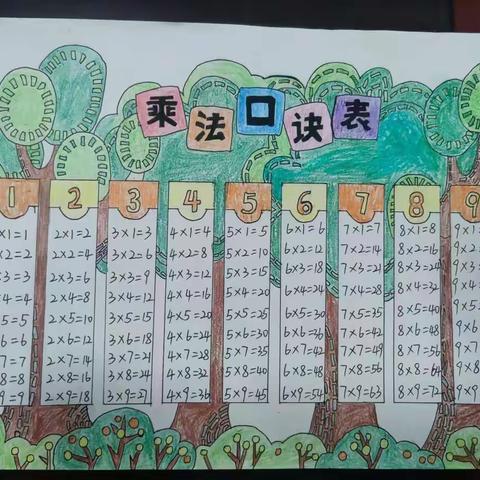 乘法口诀表
1
×1=1
×2=2
×3=3
×4=4
×5=5
×6=6
×7=7
×8=8
×9=9
2
2×1=2
2×2=4
2×3=6
2×4=8
2×5=10
2×6=12
2×7=14
2×8=16
2×9=18
3
3×1=3
3×2=6
3×3=9
3×4=12
3×5=15
3×6=18
3×7=21
3×8=24
3×9=27
4
4×1=4
4×2=8
4×3=12
4×4=16
4×5=20
4×6=24
4×7=28
4×8=32
4×9=36
5
5×1=5
5×2=10
5×3=15
5×4=20
5×5=25
5×6=30
5×7=35
5×8=40
5×9=45
6
6×1=6
6×2=12
6×3=18
6×4=24
6×5=30
6×6=36
6×7=42
6×8=48
6×9=54
7
7×1=7
7×2=14
7×3=21
7×4=28
7×5=35
7×6=42
7×7=49
7×8=56
7×9=63
8
8×1=8
8×2=16
8×3=24
8×4=32
8×5=40
8×6=48
8×7=56
8×8=64
8×9=72
9
9×1=
9×2=
9×3=
9×4=
9×5=
9×6=
9×7=
9×8=
9×9=